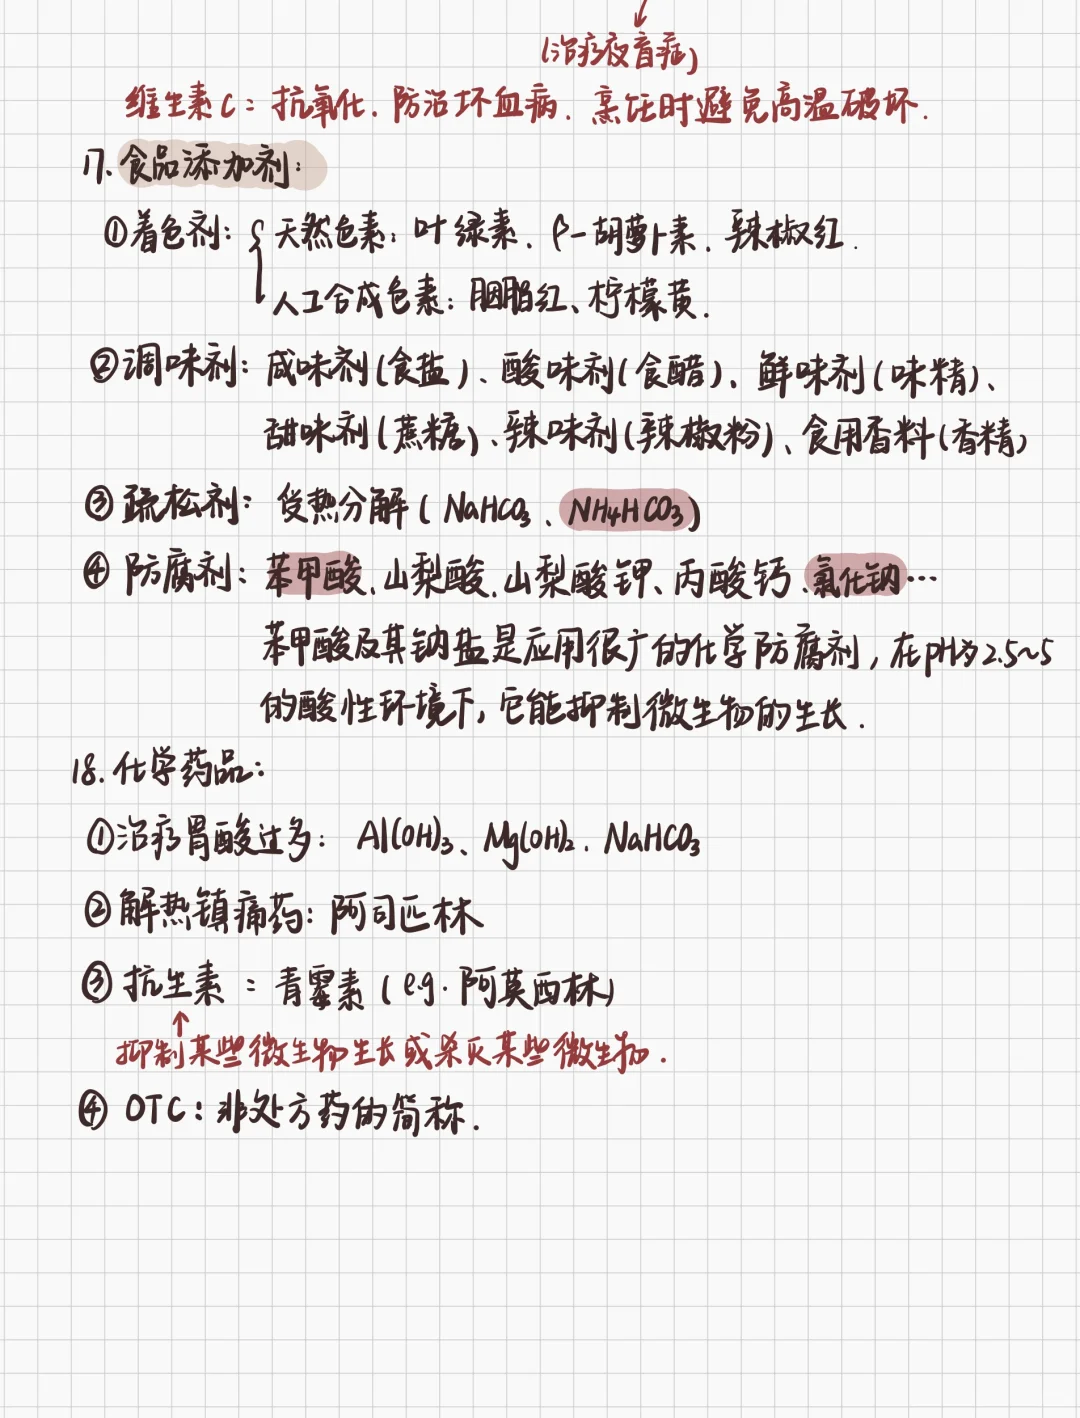 (治疗夜盲症)
维生素C：抗氧化、防治坏血病、烹饪时避免高温破坏.
17. 食品添加剂：
①着色剂：{ 天然色素：叶绿素、β-胡萝卜素、辣椒红.
人工合成色素：胭脂红、柠檬黄.
②调味剂：咸味剂(食盐)、酸味剂(食醋)、鲜味剂(味精)、
甜味剂(蔗糖)、辣味剂(辣椒粉)、食用香料(香精)
③疏松剂：受热分解(NaHCO₃、NH₄HCO₃)
④防腐剂：苯甲酸、山梨酸、山梨酸钾、丙酸钙、氯化钠…
苯甲酸及其钠盐是应用很广的化学防腐剂，在pH为2.5~5
的酸性环境下，它能抑制微生物的生长.
18. 化学药品：
①治疗胃酸过多：Al(OH)₃、Mg(OH)₂、NaHCO₃
②解热镇痛药：阿司匹林
③抗生素：青霉素(e.g.阿莫西林)
抑制某些微生物生长或杀灭某些微生物.
④OTC：非处方药的简称.